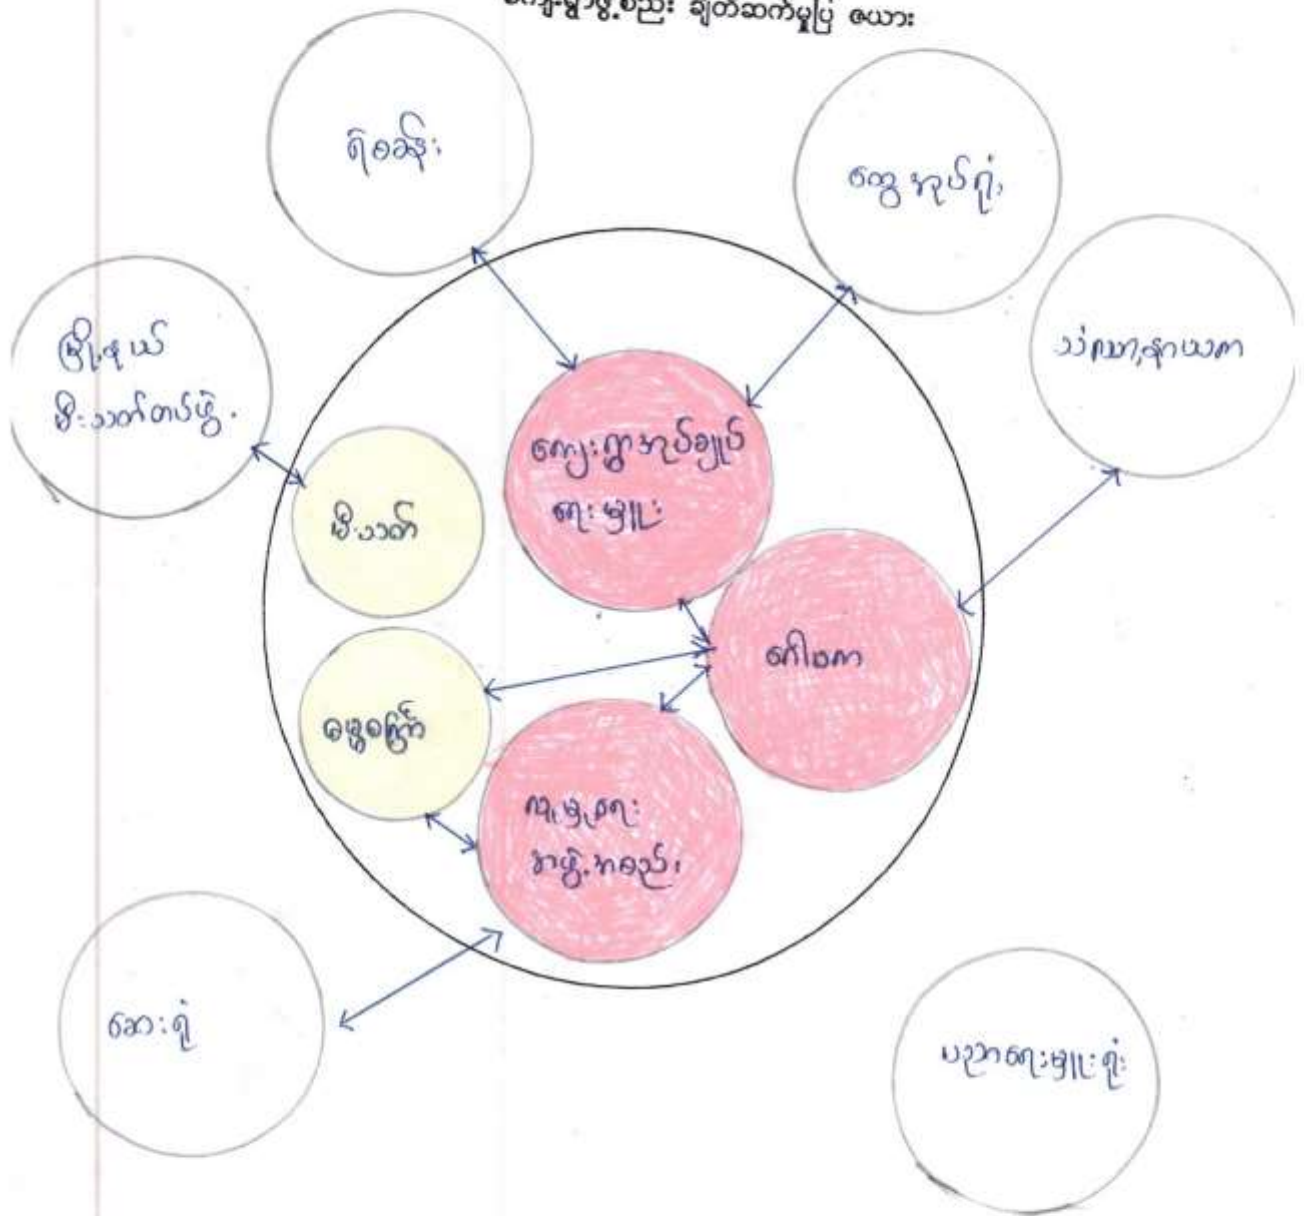 ကျေးရွာဖွဲ့စည်း ချိတ်ဆက်မှုပြ ဇယား
ရဲစခန်း
ထွေအုပ်ရုံး
မြို့နယ်
မီးသတ်တပ်ဖွဲ့
သံဃာ့နာယက
ကျေးရွာအုပ်ချုပ်
ရေးမှူး
မီးသတ်
ဂေါပက
ဓမ္မစကြာ
လူမှုရေး
အဖွဲ့အစည်း
ဆေးရုံ
ပညာရေးမှူးရုံး